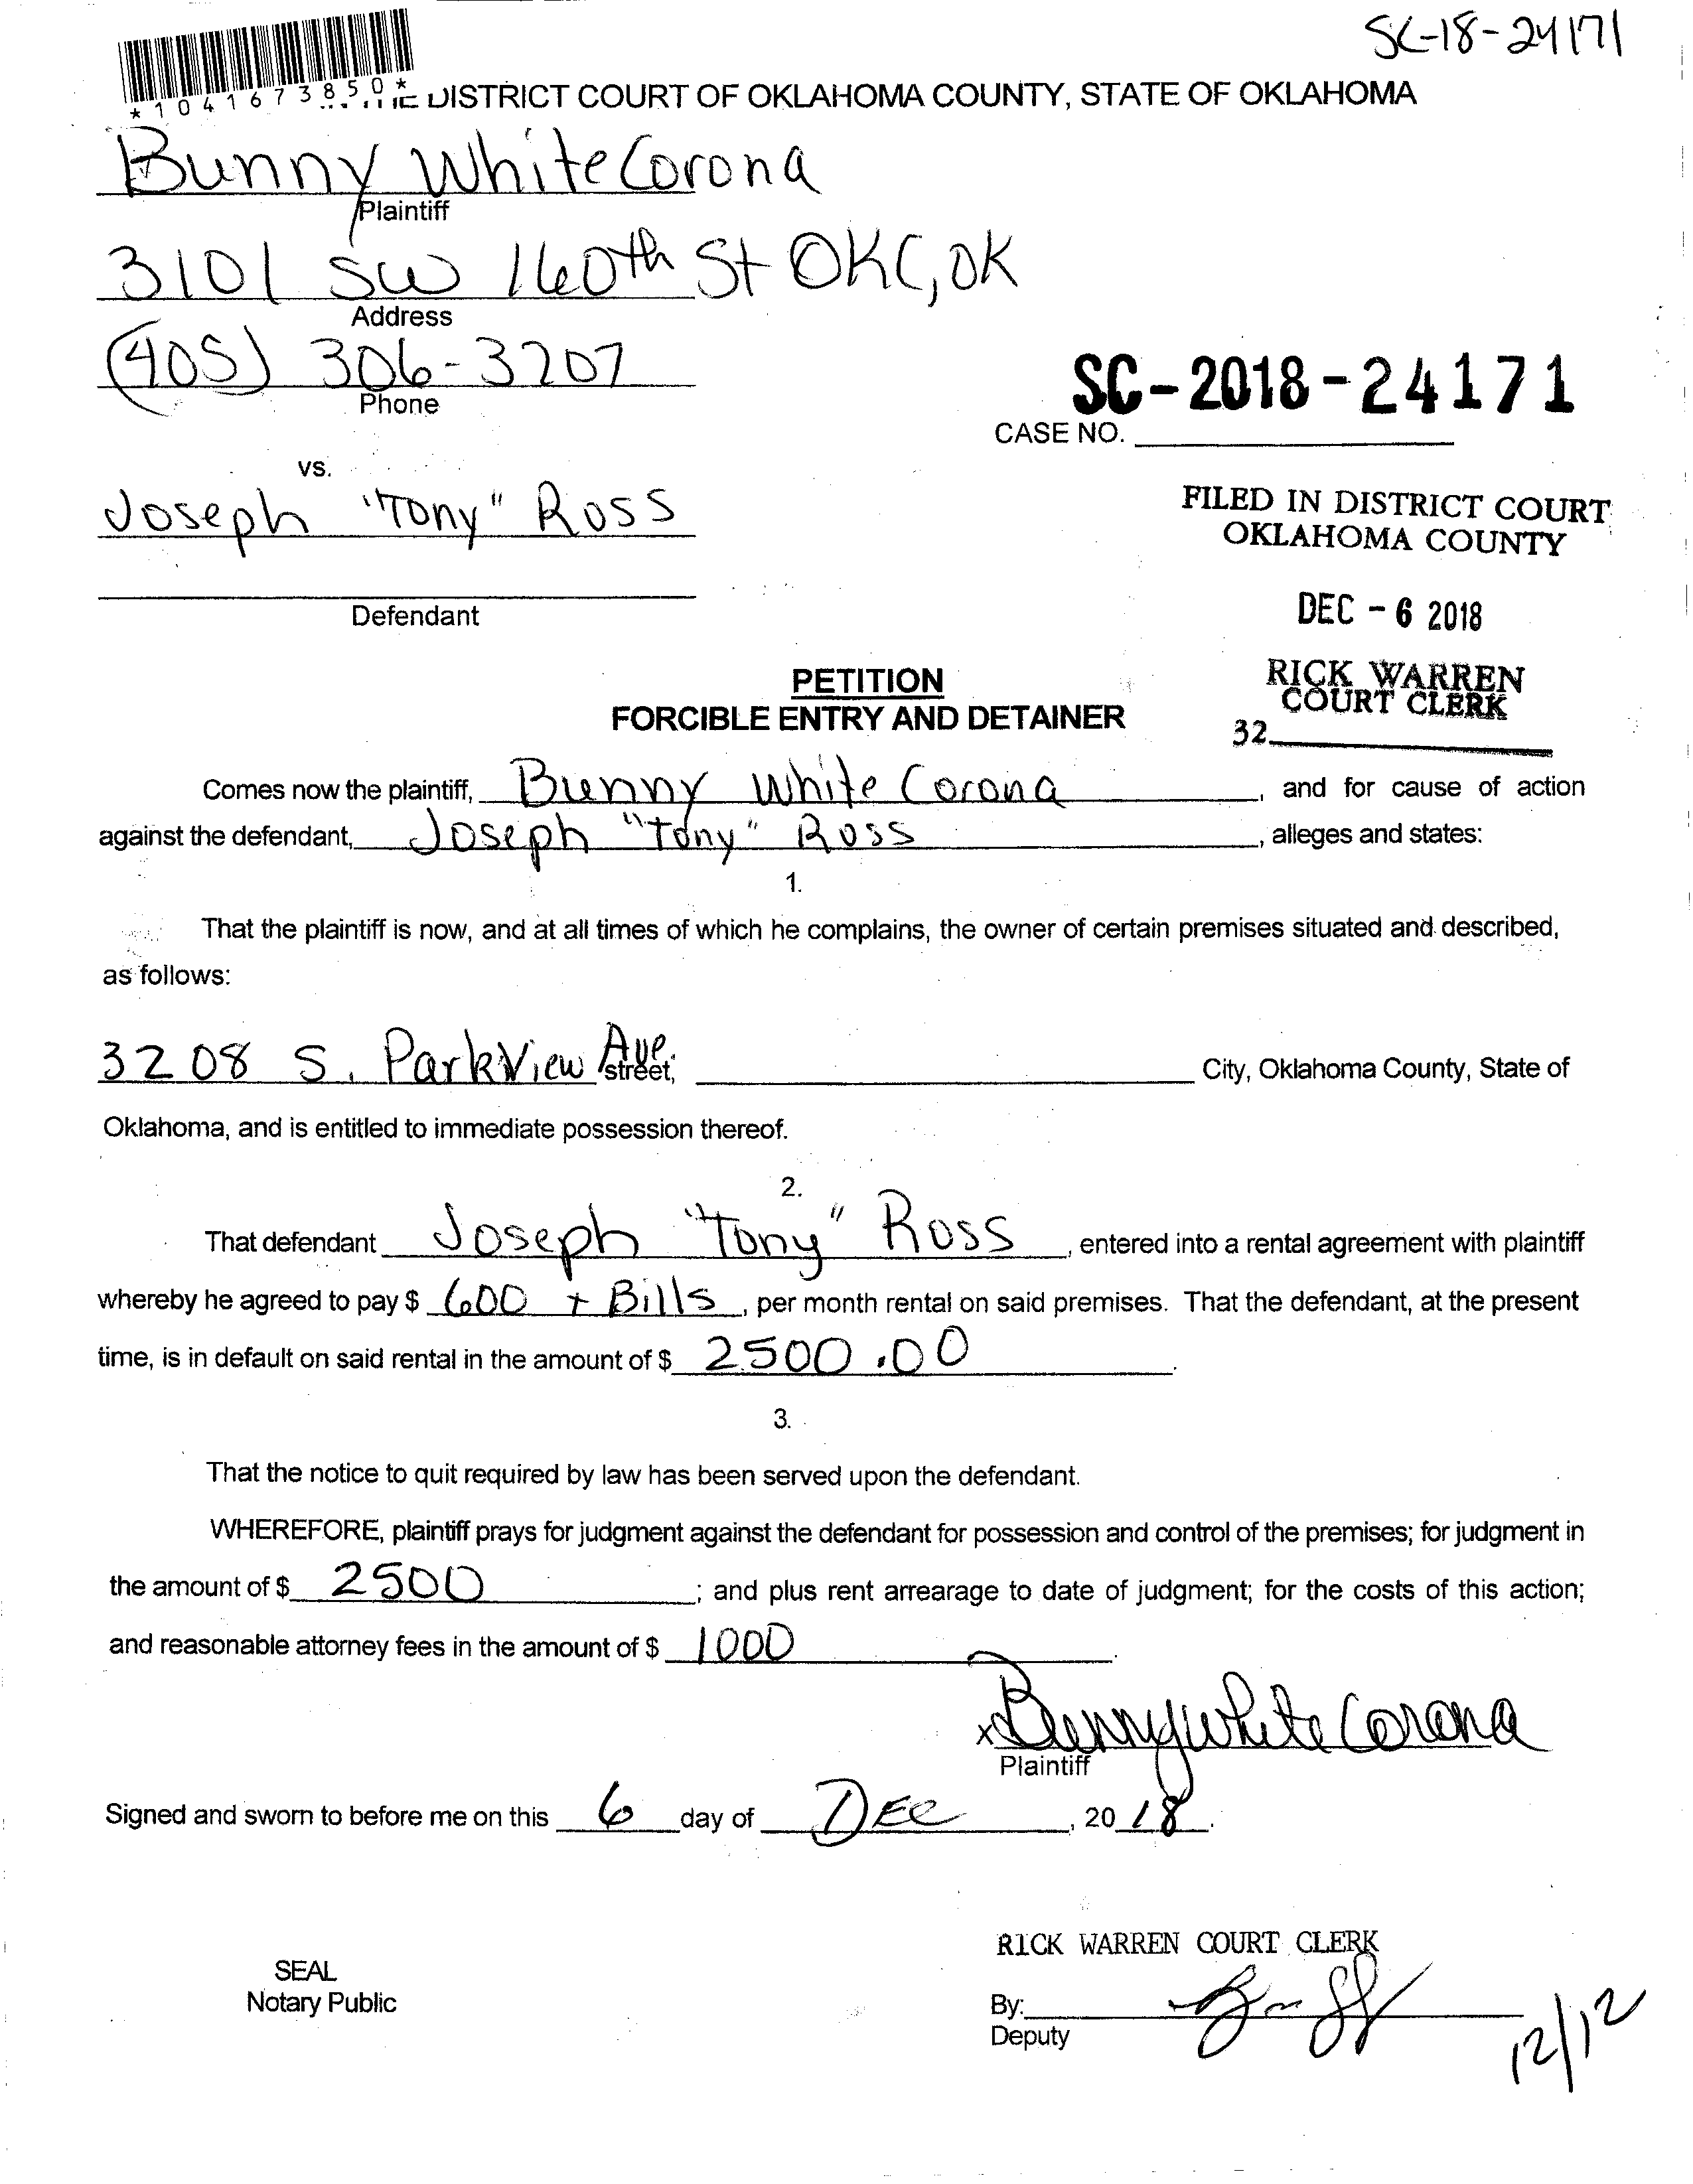 SC-18-24171
*1041673850*
DISTRICT COURT OF OKLAHOMA COUNTY, STATE OF OKLAHOMA
Bunny White Corona
Plaintiff
3101 SW 160th St OKC, OK
Address
(405) 306-3207
Phone
SC-2018-24171
CASE NO.
vs.
Joseph "Tony" Ross
Defendant
FILED IN DISTRICT COURT
OKLAHOMA COUNTY
DEC - 6 2018
RICK WARREN
COURT CLERK
32
PETITION
FORCIBLE ENTRY AND DETAINER
Comes now the plaintiff, Bunny White Corona, and for cause of action
against the defendant, Joseph "Tony" Ross, alleges and states:
1.
That the plaintiff is now, and at all times of which he complains, the owner of certain premises situated and described,
as follows:
3208 S. ParkView Ave. street, City, Oklahoma County, State of
Oklahoma, and is entitled to immediate possession thereof.
2.
That defendant Joseph "Tony" Ross, entered into a rental agreement with plaintiff
whereby he agreed to pay $ 600 + Bills, per month rental on said premises. That the defendant, at the present
time, is in default on said rental in the amount of $ 2500.00.
3.
That the notice to quit required by law has been served upon the defendant.
WHEREFORE, plaintiff prays for judgment against the defendant for possession and control of the premises; for judgment in
the amount of $ 2500; and plus rent arrearage to date of judgment; for the costs of this action;
and reasonable attorney fees in the amount of $ 1000.
x Bunny White Corona
Plaintiff
Signed and sworn to before me on this 6 day of Dec, 2018.
RICK WARREN COURT CLERK
SEAL
Notary Public
By:
Deputy
12/12